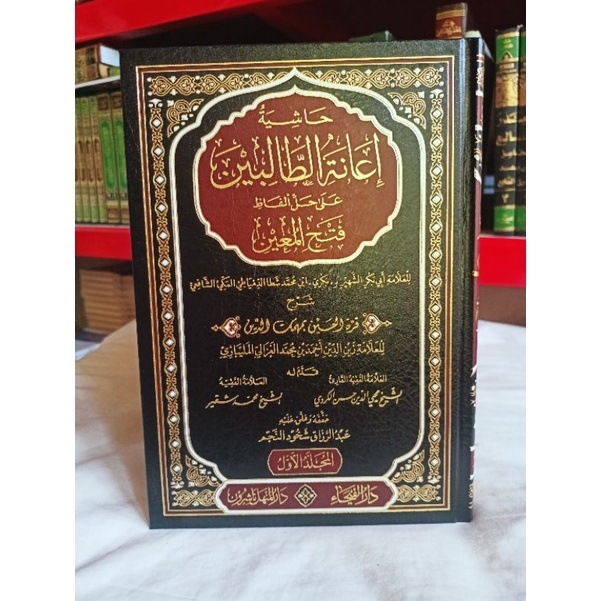 حاشية
إعانة الطالبين
على حل ألفاظ
فتح المعين
للعلامة أبي بكر الشهير بـ «بكري» ابن محمد شطا الدمياطي المكي الشافعي
شرح
قرة العين بمهمات الدين
للعلامة زين الدين أحمد بن محمد الغزالي المليباري
قدم له
العلامة الفقيه القارئ العلامة الفقيه
الشيخ محيي الدين حسن الكردي الشيخ محمد شقير
حققه وعلق عليه
عبد الرزاق شحود النجم
المجلد الأول
دار الفيحاء دار المنهل ناشرون